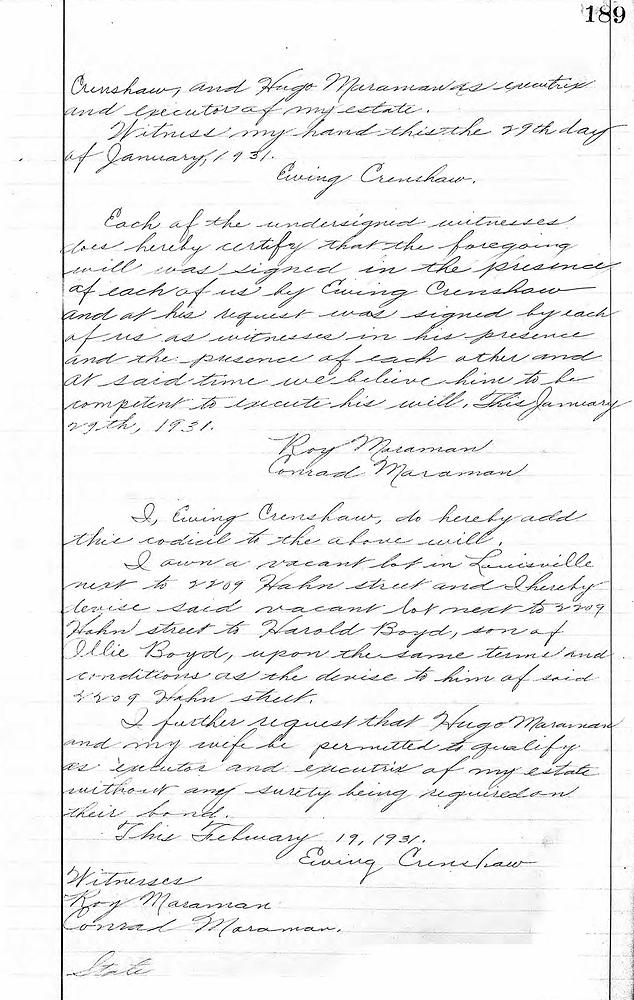 189
Crenshaw, and Hugo Maraman as executrix
and executor of my estate.
Witness my hand this the 29th day
of January, 1931.
Ewing Crenshaw.
Each of the undersigned witnesses
does hereby certify that the foregoing
will was signed in the presence
of each of us by Ewing Crenshaw
and at his request was signed by each
of us as witnesses in his presence
and the presence of each other and
at said time we believe him to be
competent to execute his will. This January
29th, 1931.
Roy Maraman
Conrad Maraman
I, Ewing Crenshaw, do hereby add
this codicil to the above will.
I own a vacant lot in Louisville
next to 2209 Hahn street and I hereby
devise said vacant lot next to 2209
Hahn street to Harold Boyd, son of
Ollie Boyd, upon the same terms and
conditions as the devise to him of said
2209 Hahn street.
I further request that Hugo Maraman
and my wife be permitted to qualify
as executor and executrix of my estate
without any surety being required on
their bond.
This February 19, 1931.
Ewing Crenshaw
Witnesses
Roy Maraman
Conrad Maraman.
State